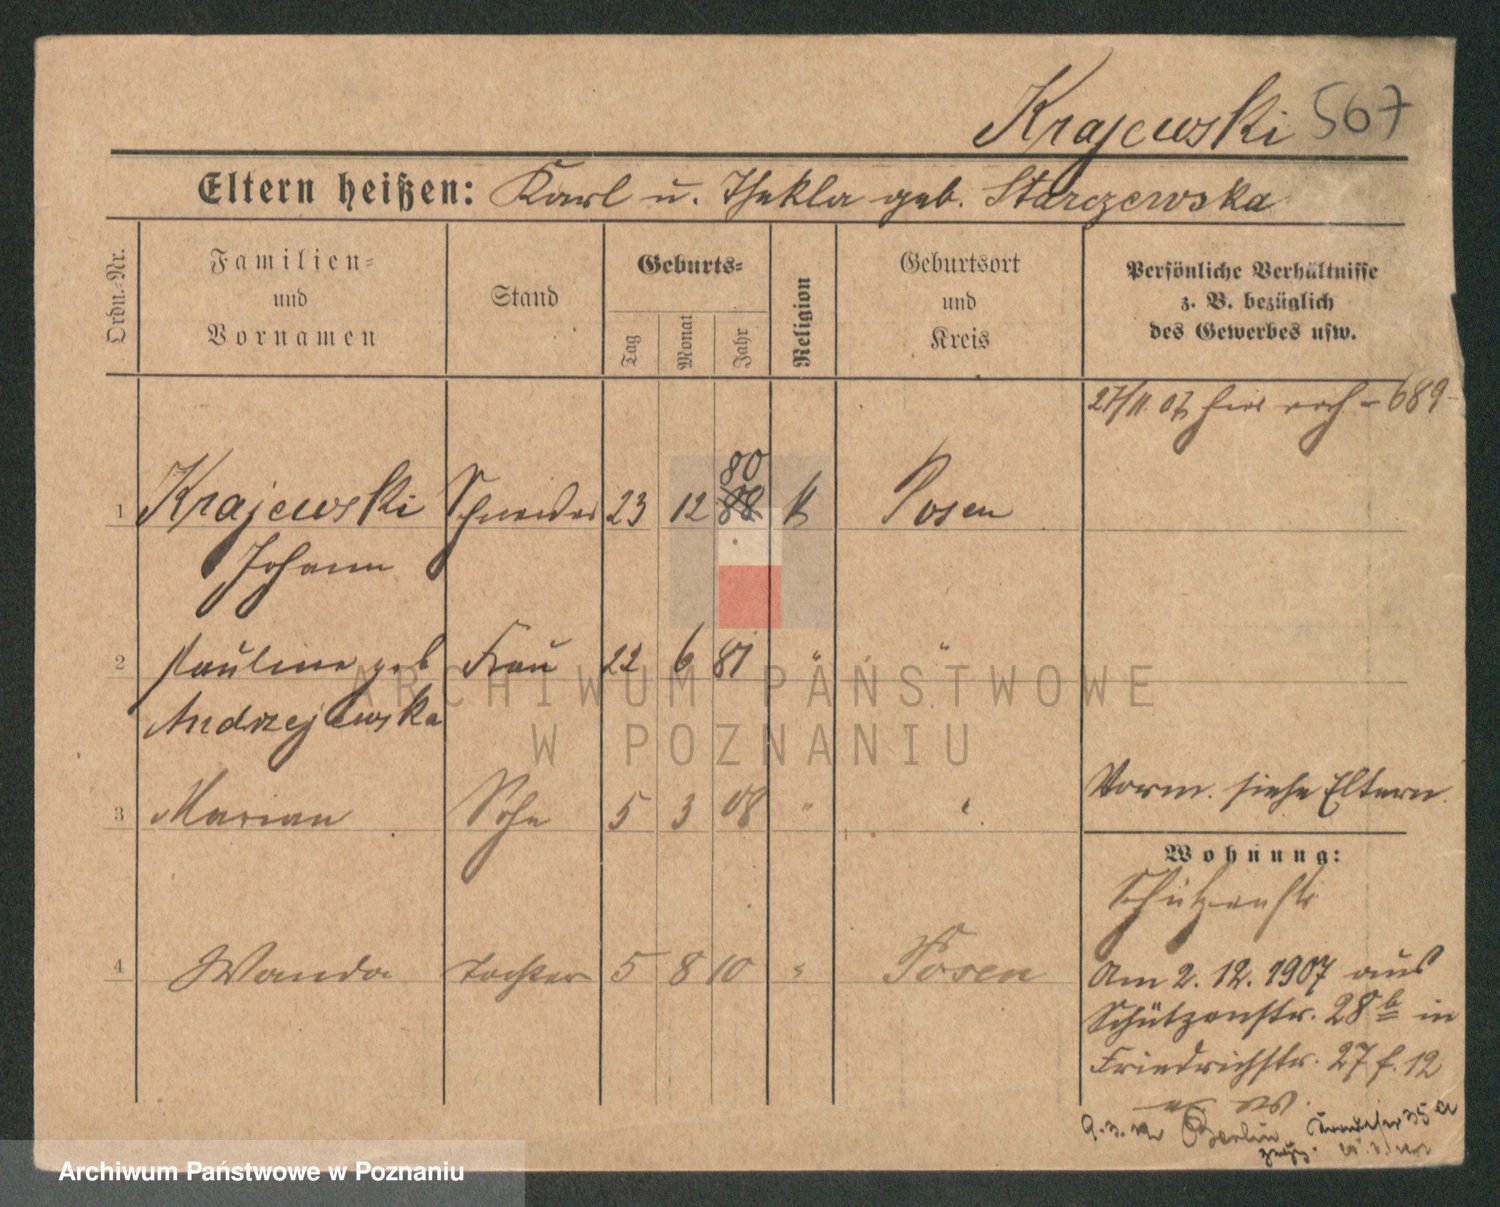 Krajewski 567
Eltern heißen: Karl u. Thekla geb. Starczewska
Ordn.-Nr.
Familien-
und
Vornamen
Stand
Geburts-
Tag
Monat
Jahr
Religion
Geburtsort
und
Kreis
Persönliche Verhältnisse
z. B. bezüglich
des Gewerbes usw.
27/11.07 hier 689
1 Krajewski Schneider 23 12 80 88 k Posen
Johann
2 Pauline geb Frau 22 6 81 " "
Andrzejewska
3 Marian Sohn 5 3 08 " "
Vorm. siehe Eltern.
Wohnung:
Schützenstr
4 Wanda Tochter 5 8 10 " Posen
Am 2. 12. 1907 aus
Schützenstr. 28b in
Friedrichstr. 27 f. 12
9. 3. Berlin 35
ARCHIWUM PAŃSTWOWE
W POZNANIU
Archiwum Państwowe w Poznaniu